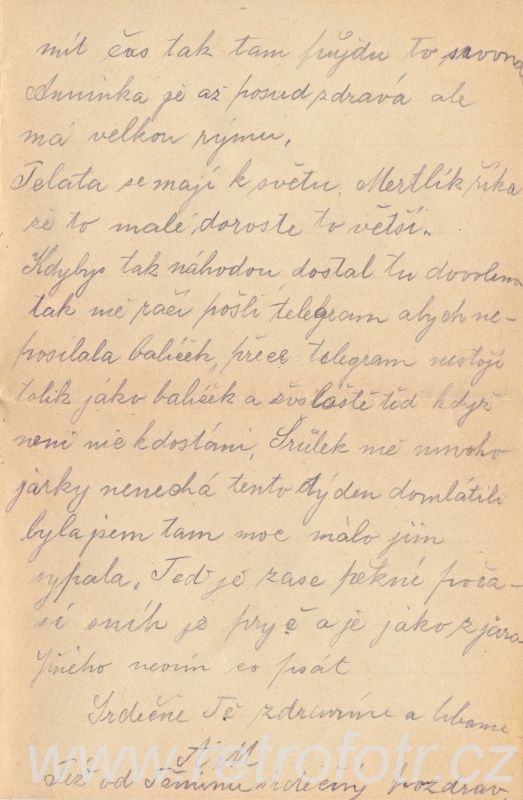 mít čas tak tam půjdu to srovna
Anninka je až posud zdravá ale
má velkou rýmu.
Telata se mají k světu. Mertlík říka
že to malé doroste to větší.
Kdybys tak náhodou dostal tu dovolenou
tak mě rači pošli telegram abych ne-
posílala balíček, přece telegram nestojí
tolik jáko balíček a zvlaště teď když
není nic k dostání. Šrůlek mě mnoho
járky nenechá tento týden domlátili
byla jsem tam moc málo jim
sypala. Teď je zase pěkné poča-
sí sníh je pryč a je jáko z jára
jiného nevím co psát
Srdečně Tě zdravíme a líbáme
A. M.
Též od srdečný pozdrav
www.retrofotr.cz